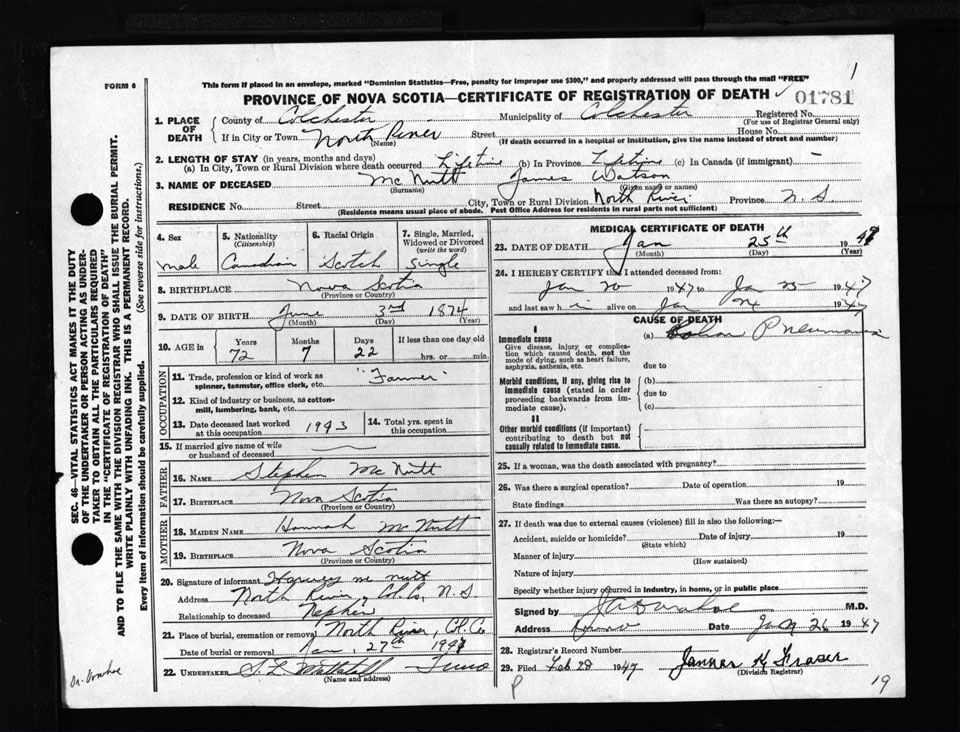 FORM 6
This form if placed in an envelope, marked "Dominion Statistics—Free, penalty for improper use $300," and properly addressed will pass through the mail "FREE"
1
PROVINCE OF NOVA SCOTIA—CERTIFICATE OF REGISTRATION OF DEATH 01781
1. PLACE OF DEATH
County of Colchester Municipality of Colchester Registered No.
(For use of Registrar General only)
If in City or Town North River Street House No.
(Name) (If death occurred in a hospital or institution, give the name instead of street and number)
2. LENGTH OF STAY (in years, months and days)
(a) In City, Town or Rural Division where death occurred Lifetime (b) In Province Lifetime (c) In Canada (if immigrant) —
3. NAME OF DECEASED McNutt James Watson
(Surname) (Given name or names)
RESIDENCE No. Street City, Town or Rural Division North River Province N.S.
(Residence means usual place of abode. Post Office Address for residents in rural parts not sufficient)
4. Sex
male
5. Nationality
(Citizenship)
Canadian
6. Racial Origin
Scotch
7. Single, Married, Widowed or Divorced
(write the word)
Single
8. BIRTHPLACE Nova Scotia
(Province or Country)
9. DATE OF BIRTH June 3rd 1874
(Month) (Day) (Year)
10. AGE in
Years Months Days If less than one day old
72 7 22 hrs. or min.
OCCUPATION
11. Trade, profession or kind of work as "Farmer"
spinner, teamster, office clerk, etc.
12. Kind of industry or business, as cotton-
mill, lumbering, bank, etc.
13. Date deceased last worked at this occupation 1943
14. Total yrs. spent in this occupation
15. If married give name of wife
or husband of deceased
FATHER
16. NAME Stephen McNutt
17. BIRTHPLACE Nova Scotia
(Province or Country)
MOTHER
18. MAIDEN NAME Hannah McNutt
19. BIRTHPLACE Nova Scotia
(Province or Country)
20. Signature of informant McNutt
Address North River, Col. Co. N.S.
Relationship to deceased Nephew
21. Place of burial, cremation or removal North River, Col. Co
Date of burial or removal Jan. 27th 1947
22. UNDERTAKER Truro
(Name and address)
MEDICAL CERTIFICATE OF DEATH
23. DATE OF DEATH Jan 25th 1947
(Month) (Day) (Year)
24. I HEREBY CERTIFY that I attended deceased from:
Jan 20 1947 to Jan 25 1947
and last saw h i alive on Jan 24 1947
CAUSE OF DEATH
I
Immediate cause
Give disease, injury or complication which caused death, not the mode of dying, such as heart failure, asphyxia, asthenia, etc.
(a) Lobar Pneumonia
due to
Morbid conditions, if any, giving rise to immediate cause (stated in order proceeding backwards from immediate cause).
(b)
due to
(c)
II
Other morbid conditions (if important) contributing to death but not causally related to immediate cause.
25. If a woman, was the death associated with pregnancy?
26. Was there a surgical operation? Date of operation 19
State findings Was there an autopsy?
27. If death was due to external causes (violence) fill in also the following:—
Accident, suicide or homicide? Date of injury 19
(State which)
Manner of injury
(How sustained)
Nature of injury
Specify whether injury occurred in industry, in home, or in public place
Signed by M.D.
Address Truro Date Jan 26 1947
28. Registrar's Record Number
29. Filed Feb 28 1947 Fraser
(Division Registrar)
P
19
Dr. Donahoe
SEC. 46—VITAL STATISTICS ACT MAKES IT THE DUTY
OF THE UNDERTAKER OR PERSON ACTING AS UNDER-
TAKER TO OBTAIN ALL THE PARTICULARS REQUIRED
IN THE "CERTIFICATE OF REGISTRATION OF DEATH" AND TO FILE THE SAME WITH THE DIVISION REGISTRAR WHO SHALL ISSUE THE BURIAL PERMIT.
WRITE PLAINLY WITH UNFADING INK. THIS IS A PERMANENT RECORD.
Every item of information should be carefully supplied. (See reverse side for instructions.)